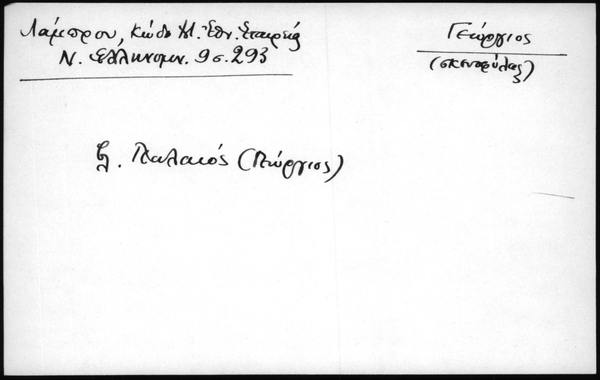 Λάμπρου, Κώδ. Ἱστ. Ἐθν. Ἑταιρείας
Ν. Ἑλληνομν. 9 σ. 293
Γεώργιος
(σκευοφύλαξ)
βλ. Παλαιός (Γεώργιος)